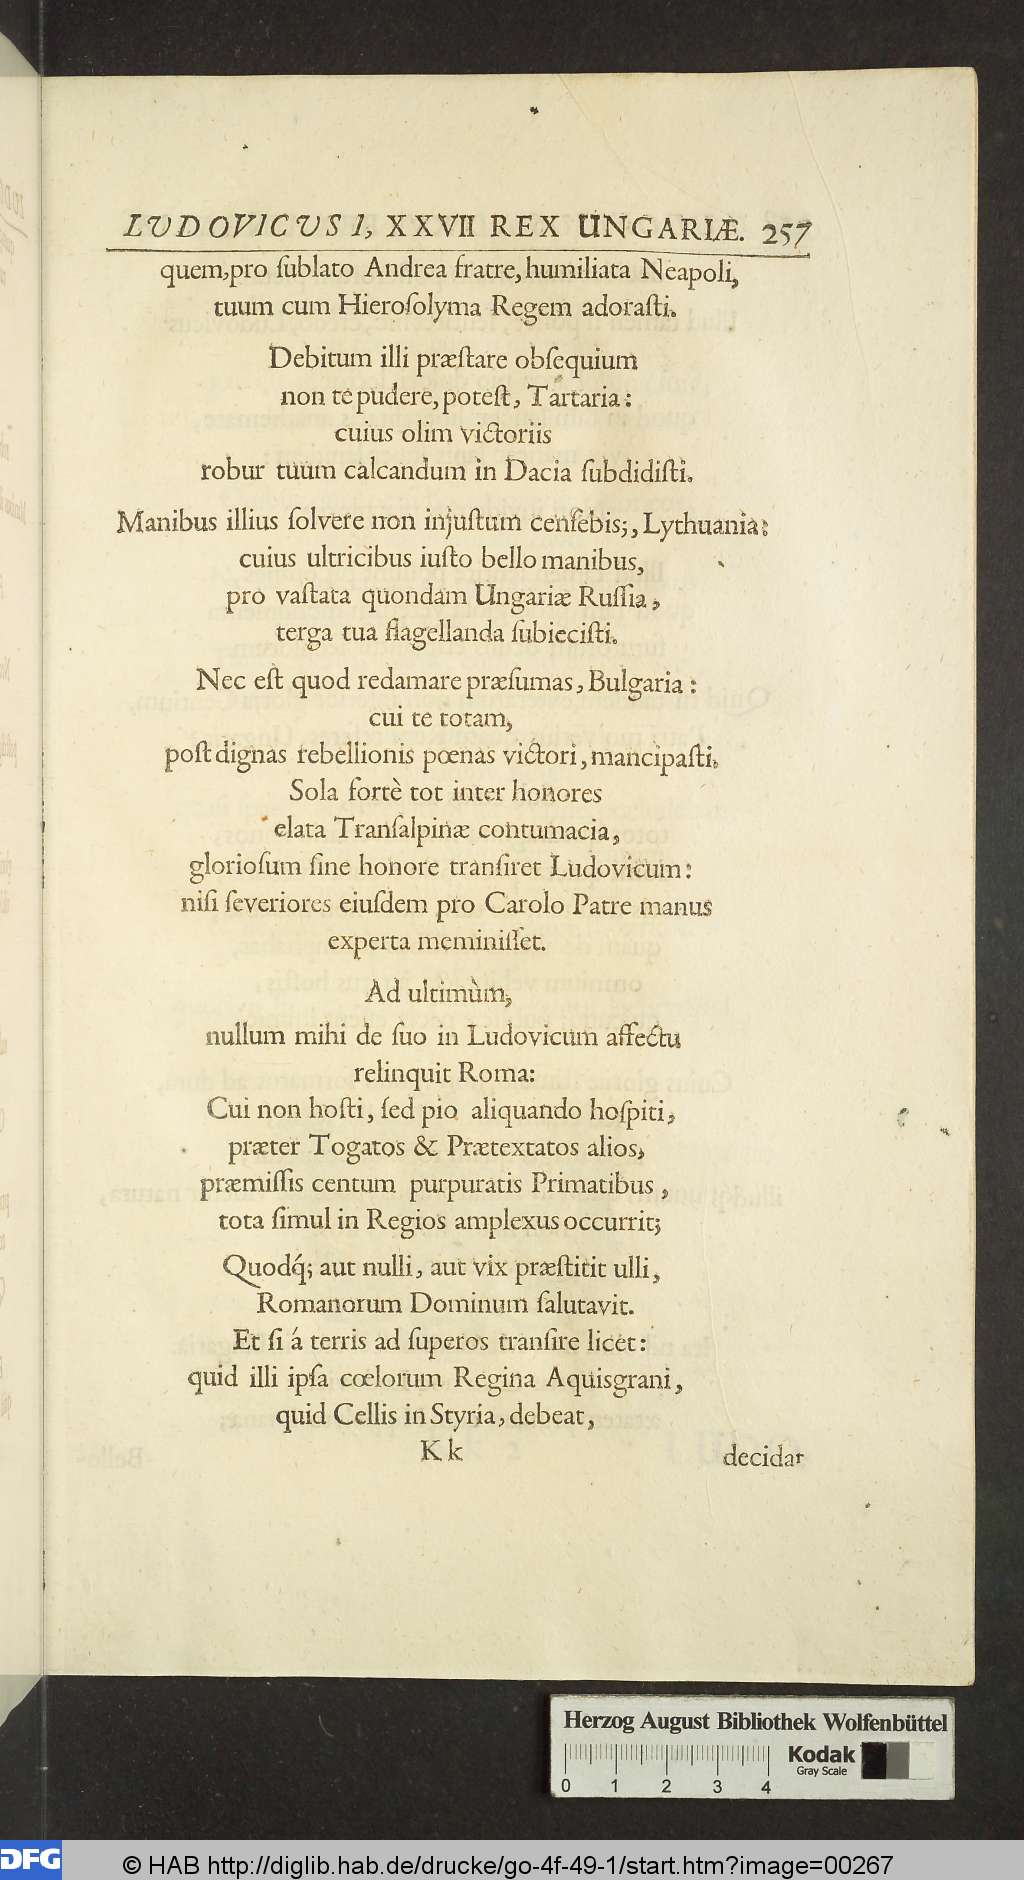 LUDOVICUS I, XXVII REX UNGARIÆ. 257
quem, pro ſublato Andrea fratre, humiliata Neapoli,
tuum cum Hieroſolyma Regem adoraſti.
Debitum illi præſtare obſequium
non te pudere, poteſt, Tartaria:
cuius olim victoriis
robur tuum calcandum in Dacia ſubdidiſti.
Manibus illius ſolvere non injuſtum cenſebis;, Lythuania:
cuius ultricibus iuſto bello manibus,
pro vaſtata quondam Ungariæ Ruſſia,
terga tua flagellanda ſubieciſti.
Nec eſt quod redamare præſumas, Bulgaria:
cui te totam,
poſt dignas rebellionis pœnas victori, mancipaſti.
Sola fortè tot inter honores
elata Tranſalpinæ contumacia,
glorioſum ſine honore tranſiret Ludovicum:
niſi ſeveriores eiuſdem pro Carolo Patre manus
experta meminiſſet.
Ad ultimùm,
nullum mihi de ſuo in Ludovicum affectu
relinquit Roma:
Cui non hoſti, ſed pio aliquando hoſpiti,
præter Togatos & Prætextatos alios,
præmiſſis centum purpuratis Primatibus,
tota ſimul in Regios amplexus occurrit;
Quodq́; aut nulli, aut vix præſtitit ulli,
Romanorum Dominum ſalutavit.
Et ſi á terris ad ſuperos tranſire licet:
quid illi ipſa cœlorum Regina Aquisgrani,
quid Cellis in Styria, debeat,
K k
decidar
Herzog August Bibliothek Wolfenbüttel
Kodak
Gray Scale
0 1 2 3 4
DFG
© HAB http://diglib.hab.de/drucke/go-4f-49-1/start.htm?image=00267